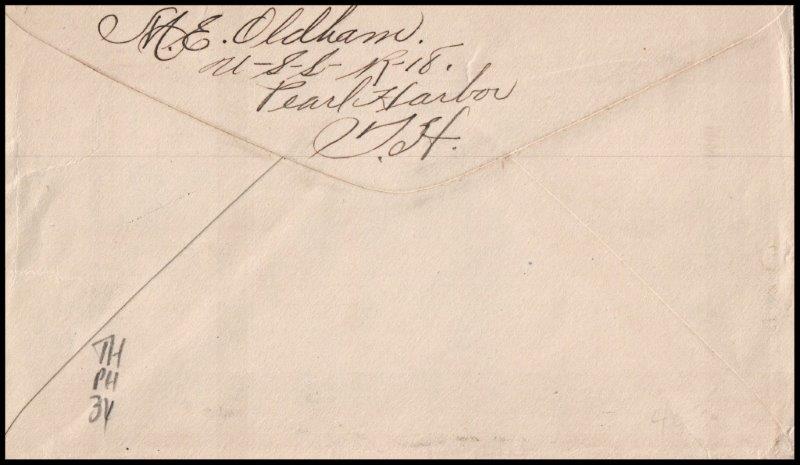 M.E. Oldham.
U-S-S- R-18.
Pearl Harbor
T.H.
TH
PH
3Y